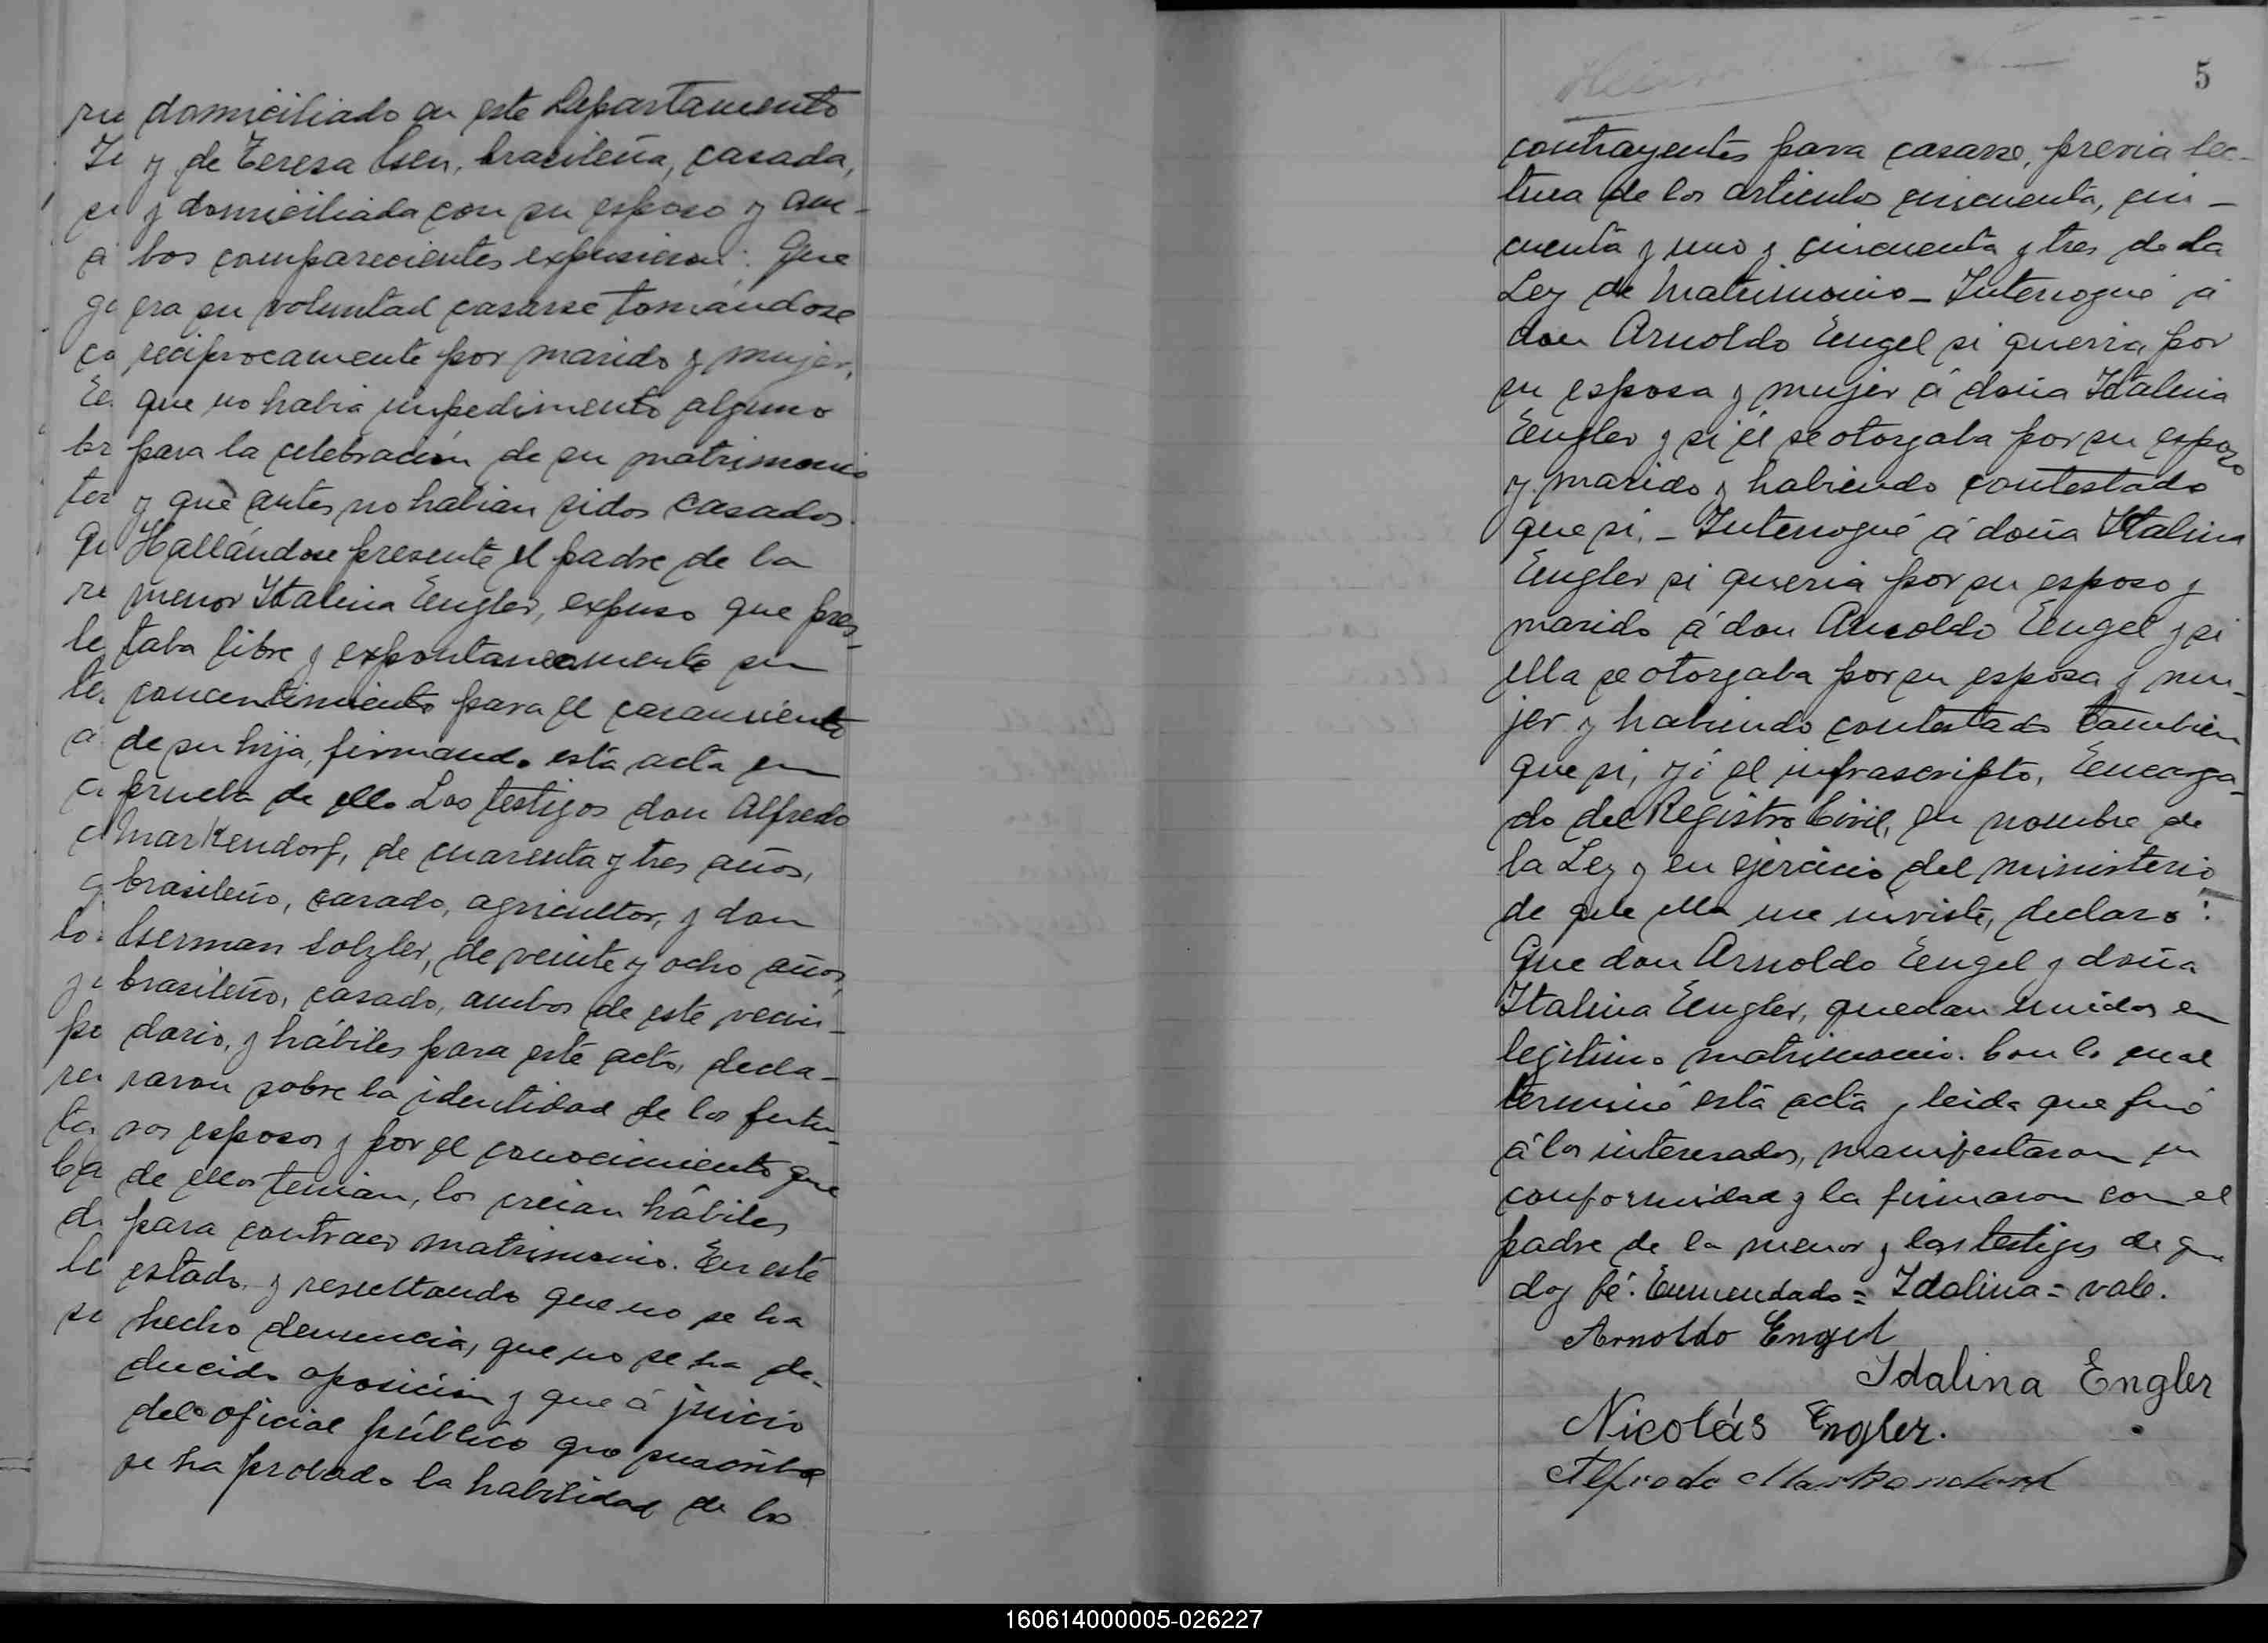 domiciliado en este Departamento
y de Teresa Isen, brasileña, casada,
y domiciliada con su esposo y am-
bos comparecientes expusieron: Que
era su voluntad casarse tomándose
reciprocamente por marido y mujer,
que no habia impedimento alguno
para la celebración de su matrimonio
y que antes no habian sidos casados.
Hallándose presente el padre de la
menor Idalina Engler, expuso que pres-
taba libre y expontaneamente su
concentimiento para el casamiento
de su hija, firmando esta acta en
prueba de ello Los testigos don Alfredo
Markendorf, de cuarenta y tres años,
brasileño, casado, agricultor, y don
de veinte y ocho años,
brasileño, casado, ambos de este vecin-
dario, y hábiles para este acto, decla-
raron sobre la identidad de los futu-
ros esposos y por el conocimiento que
de ellos tenian, los creian hábiles
para contraer matrimonio. En este
estado, y resultando que no se ha
hecho denuncia, que no se ha de-
ducido oposición y que á juicio
del oficial público que suscribe
se ha probado la habilidad de los
5
contrayentes para casarse, previa lec-
tura de los articulos cincuenta, cin-
cuenta y uno y cincuenta y tres de la
Ley de Matrimonio - Interrogué á
don Arnoldo Engel si queria por
su esposa y mujer á doña Idalina
Engler y si él se otorgaba por su esposo
y marido y habiendo contestado
que si. - Interrogué á doña Italina
Engler si queria por su esposo y
marido á don Arnoldo Engel y si
ella se otorgaba por su esposa y mu-
jer y habiendo contestado tambien
que si, yó el infrascripto, Encarga-
do del Registro Civil, en nombre de
la Ley y en ejercicio del ministerio
de que ella me inviste, declaro:
Que don Arnoldo Engel y doña
Italina Engler, quedan unidos en
legitimo matrimonio. Con lo cual
terminó esta acta y leida que fué
á los interesados, manifestaron su
conformidad y la firmaron con el
padre de la menor y los testigos de que
doy fé. Enmendado = Idalina = vale.
Arnoldo Engel
Idalina Engler
Nicolás Engler.
Alfredo Markendorf
160614000005-026227